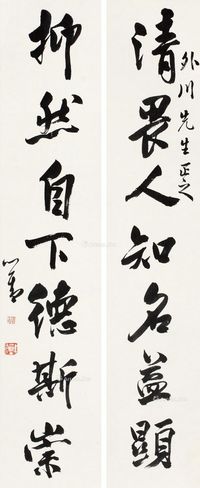 清畏人知名益顯
外川先生正之
抑然自下德斯崇
心畬